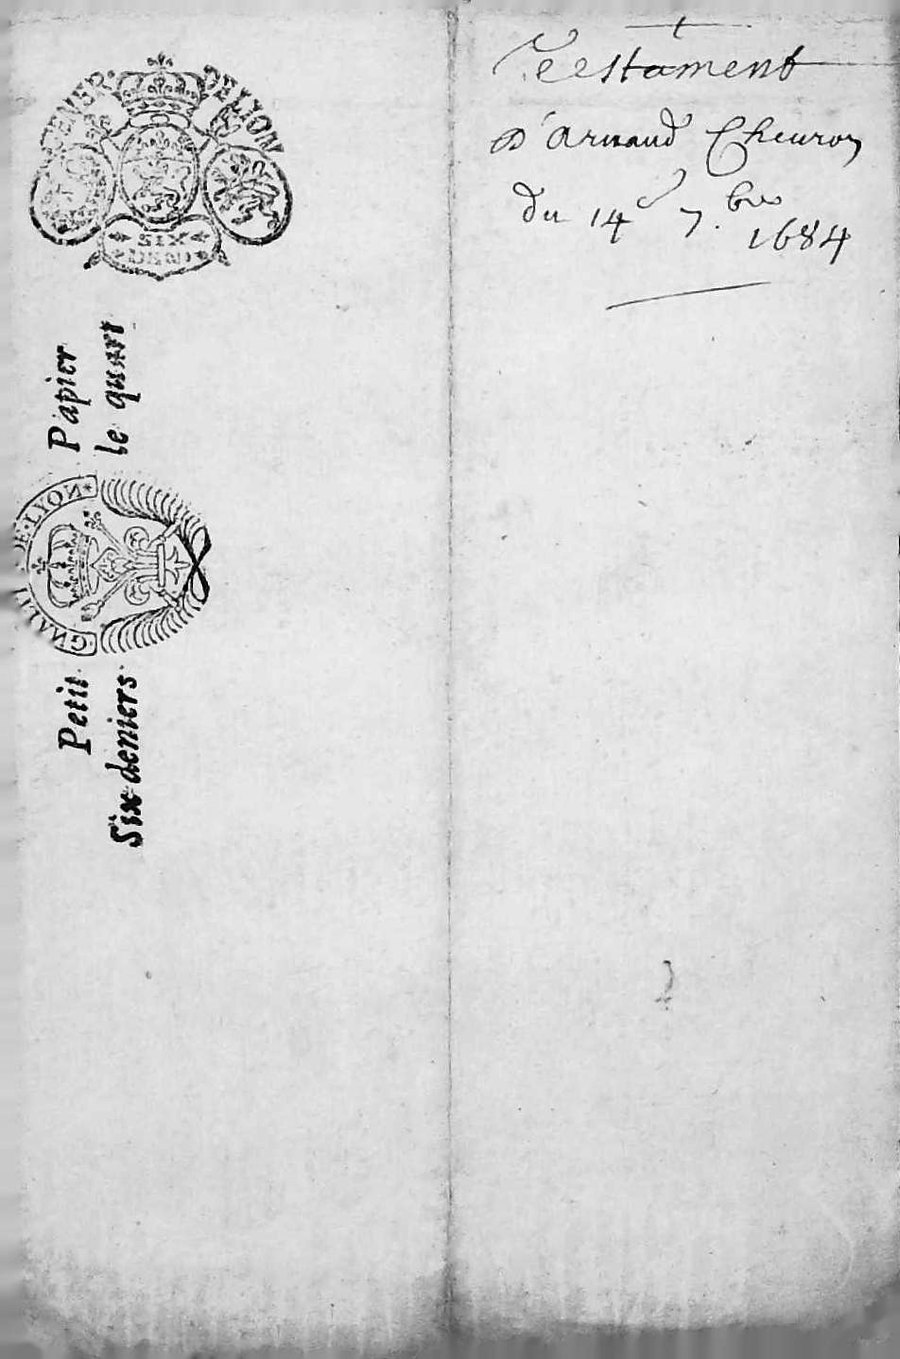 GENER DE LYON
SIX
DEN
Papier
le quart
DE LYON
Petit
Six deniers
Testament
D'Arnaud Cheuron
du 14e 7.bre
1684